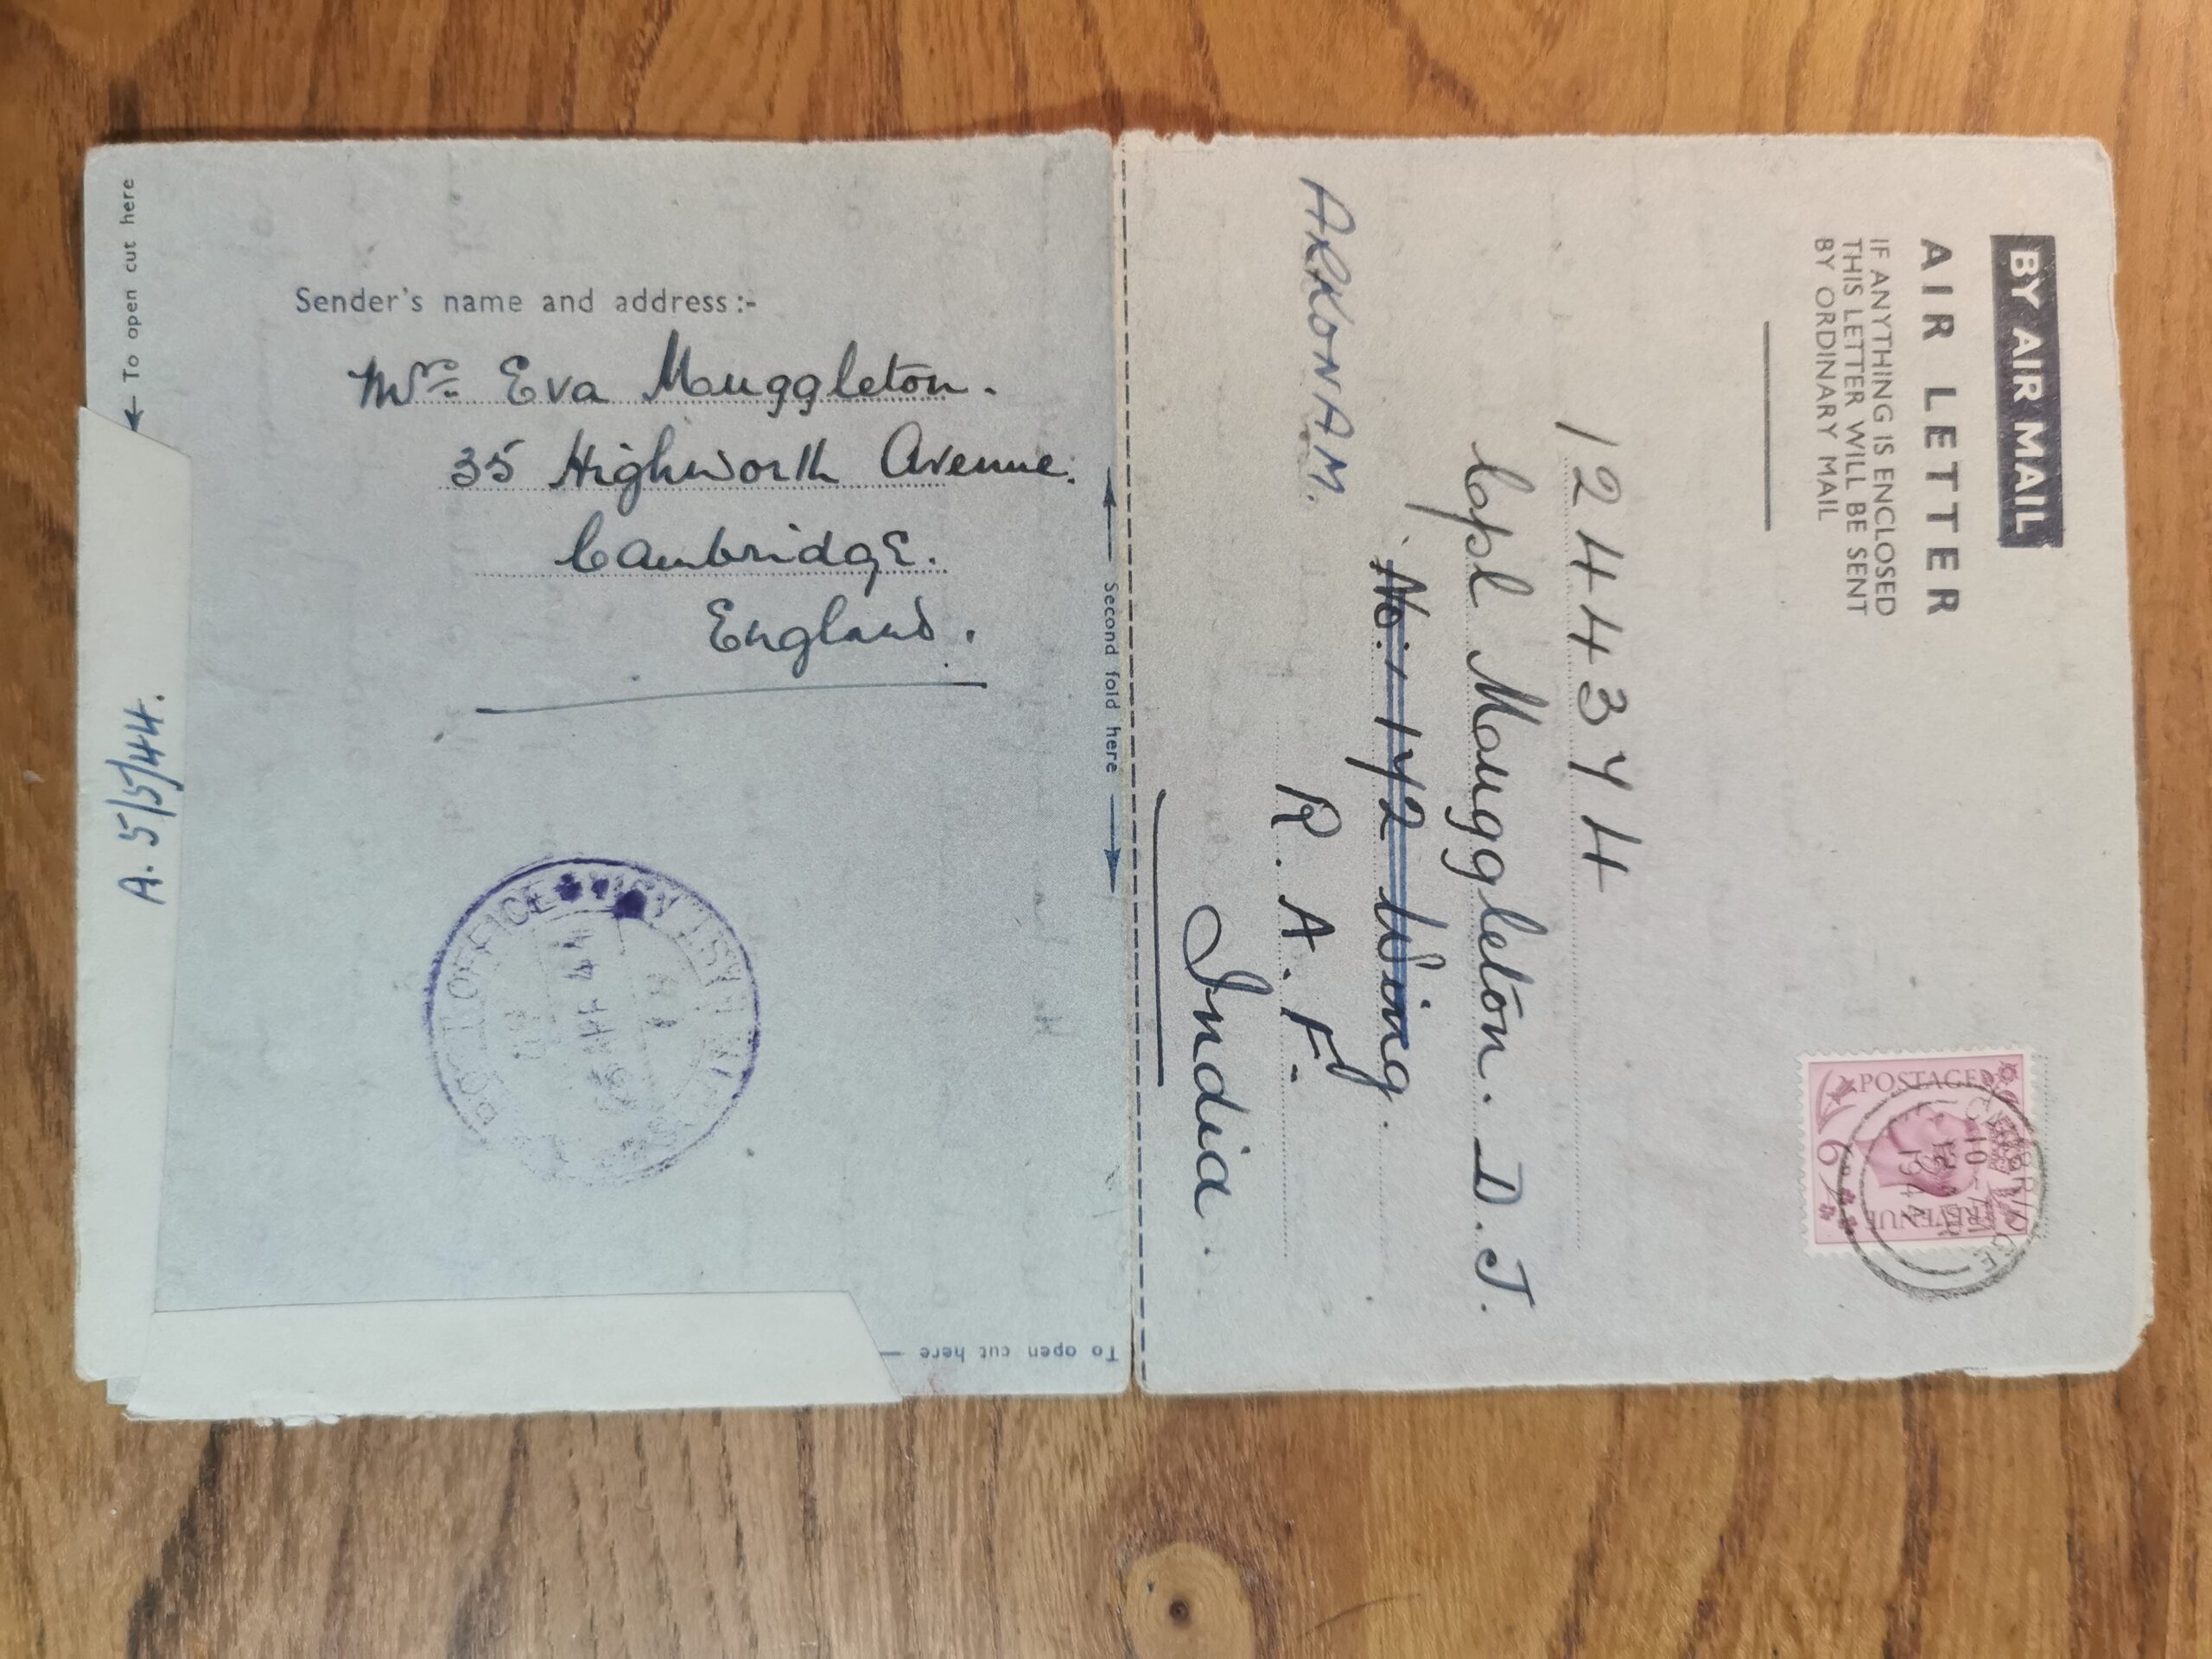 To open cut here
Sender's name and address:-
Mrs Eva Mauggleton.
35 Highworth Avenue.
Cambridge.
England.
A. 5/5/44.
POST OFFICE
Second fold here
To open cut here
BY AIR MAIL
AIR LETTER
IF ANYTHING IS ENCLOSED
THIS LETTER WILL BE SENT
BY ORDINARY MAIL
POSTAGE
REVENUE
6D
CAMBRIDGE
10-
1944
1244374
Capl Mauggleton. D.J.
No. 1 172 Wing.
ARKONAM.
R.A.F.
India.